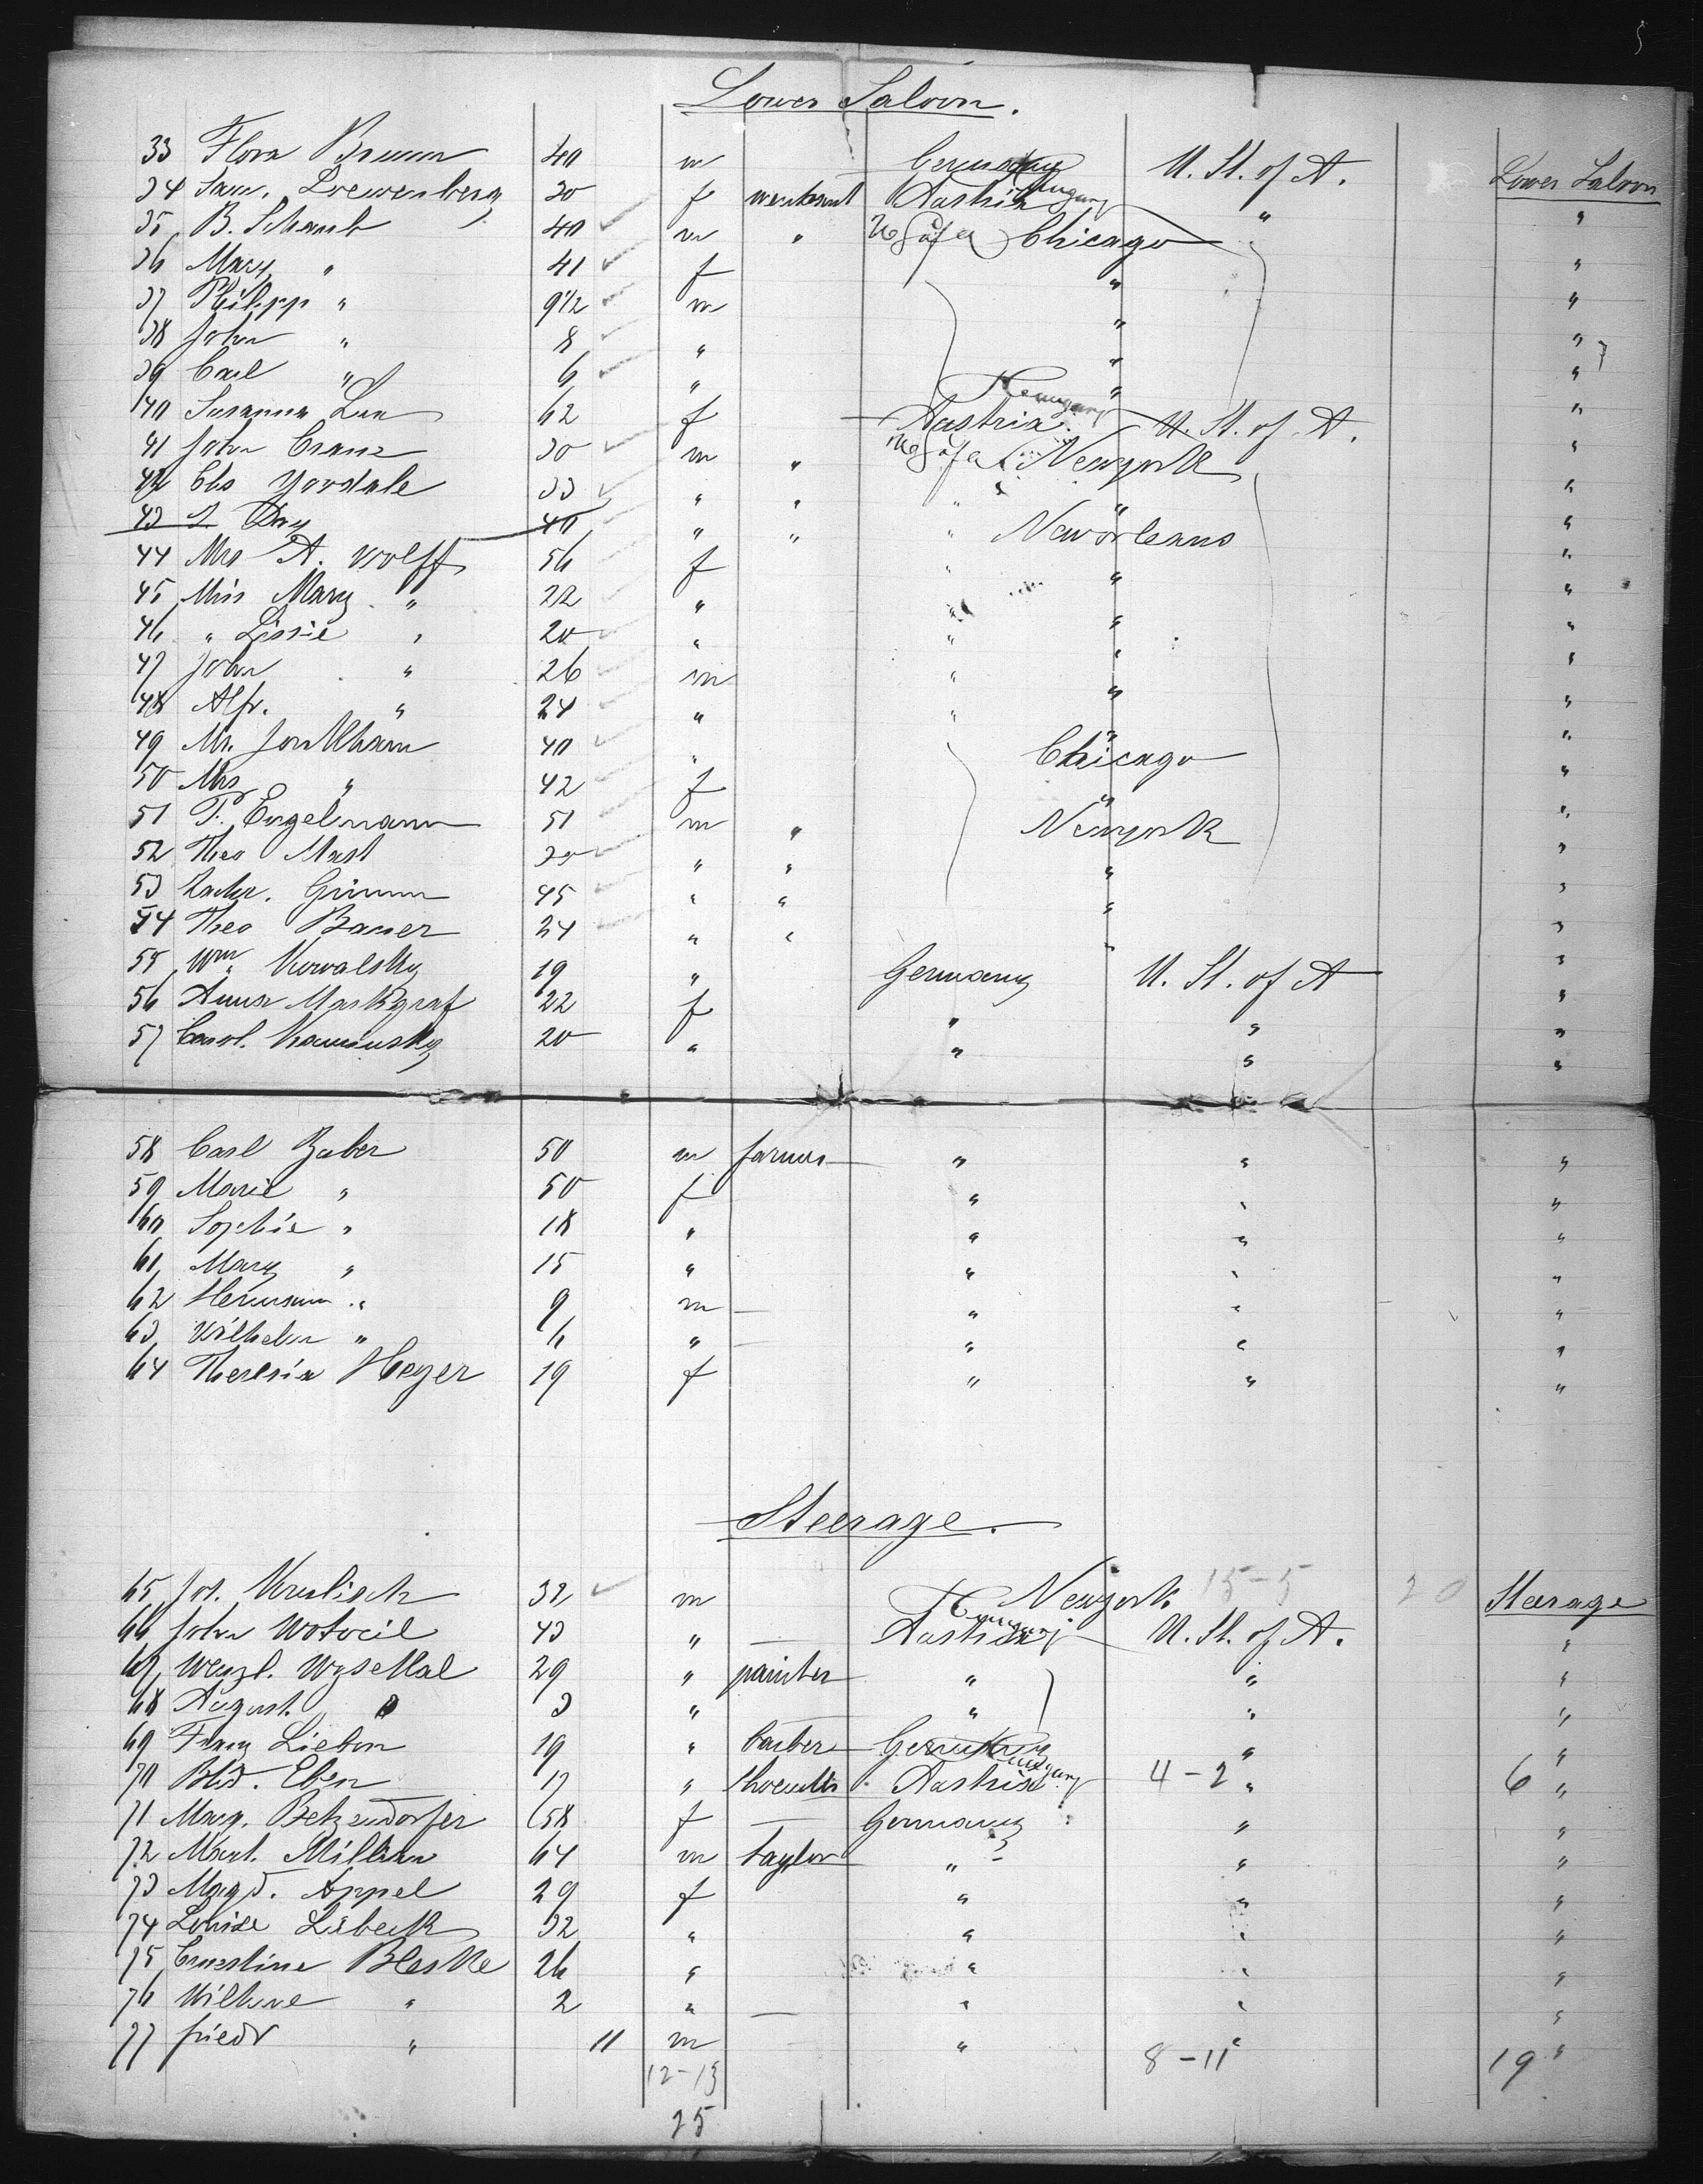 Lower Saloon.
33 Flora Brumm 40 m Germany U. St. of A. Lower Saloon
34 Sam. Loewenberg 30 f merchant Austria Hungary " "
35 B. Schaub 40 m " U S of A Chicago "
36 Mary " 41 f " "
37 Philipp " 9 1/2 m " "
38 John " 8 " " "
39 Carl " 6 " " "
40 Susanna Lux 62 f Austria Hungary U. St. of A. "
41 John Cranz 30 m " U S of A Newyork "
42 Chs Yordale 33 " " " " "
43 L Day 40 " " " Neworleans "
44 Mrs A. Wolff 56 f " " "
45 Miss Mary " 22 " " " "
46 " Lissie " 20 " " " "
47 John " 26 m " " "
48 Alfr. " 24 " " " "
49 Mr. 40 " Chicago "
50 Mrs " 42 f " "
51 P. Engelmann 51 m " Newyork "
52 Theo Mast 30 " " " "
53 Zachr. Grimm 45 " " " "
54 Theo Bauer 24 " " " "
55 Wm Kowalsky 19 " Germany U. St. of A "
56 Anna Markgraf 22 f " " "
57 Carol. Kaminsky 20 " " " "
58 Carl Zaber 50 m farmer " " "
59 Marie " 50 f " " "
60 Sophie " 18 " " " "
61 Mary " 15 " " " "
62 Hermann " 9 m — " " "
63 Wilhelm " 6 " — " " "
64 Theresia Heyer 19 f " " "
Steerage.
65 Jos. Krulisch 32 m Newyork 15-5 20 Steerage
66 John Wotocil 43 " — Austria Hungary U. St. of A. "
67 Wenzl. Wyskokal 29 " painter " " "
68 August " 3 " " " "
69 Franz Liebon 19 " barber Germany " "
70 Bld. Eben 17 " Austria Hungary 4-2 " 6 "
71 Marg. Betzendorfer 58 f — Germany " "
72 Mart. Millian 64 m taylor " " "
73 Magd. Appel 29 f " " "
74 Louise Lübeck 32 " " " "
75 Ernestine Bleske 26 " " " "
76 Wilhme " 2 " — " " "
77 friedr " 11 m " 8-11 " 19 "
12-13
25